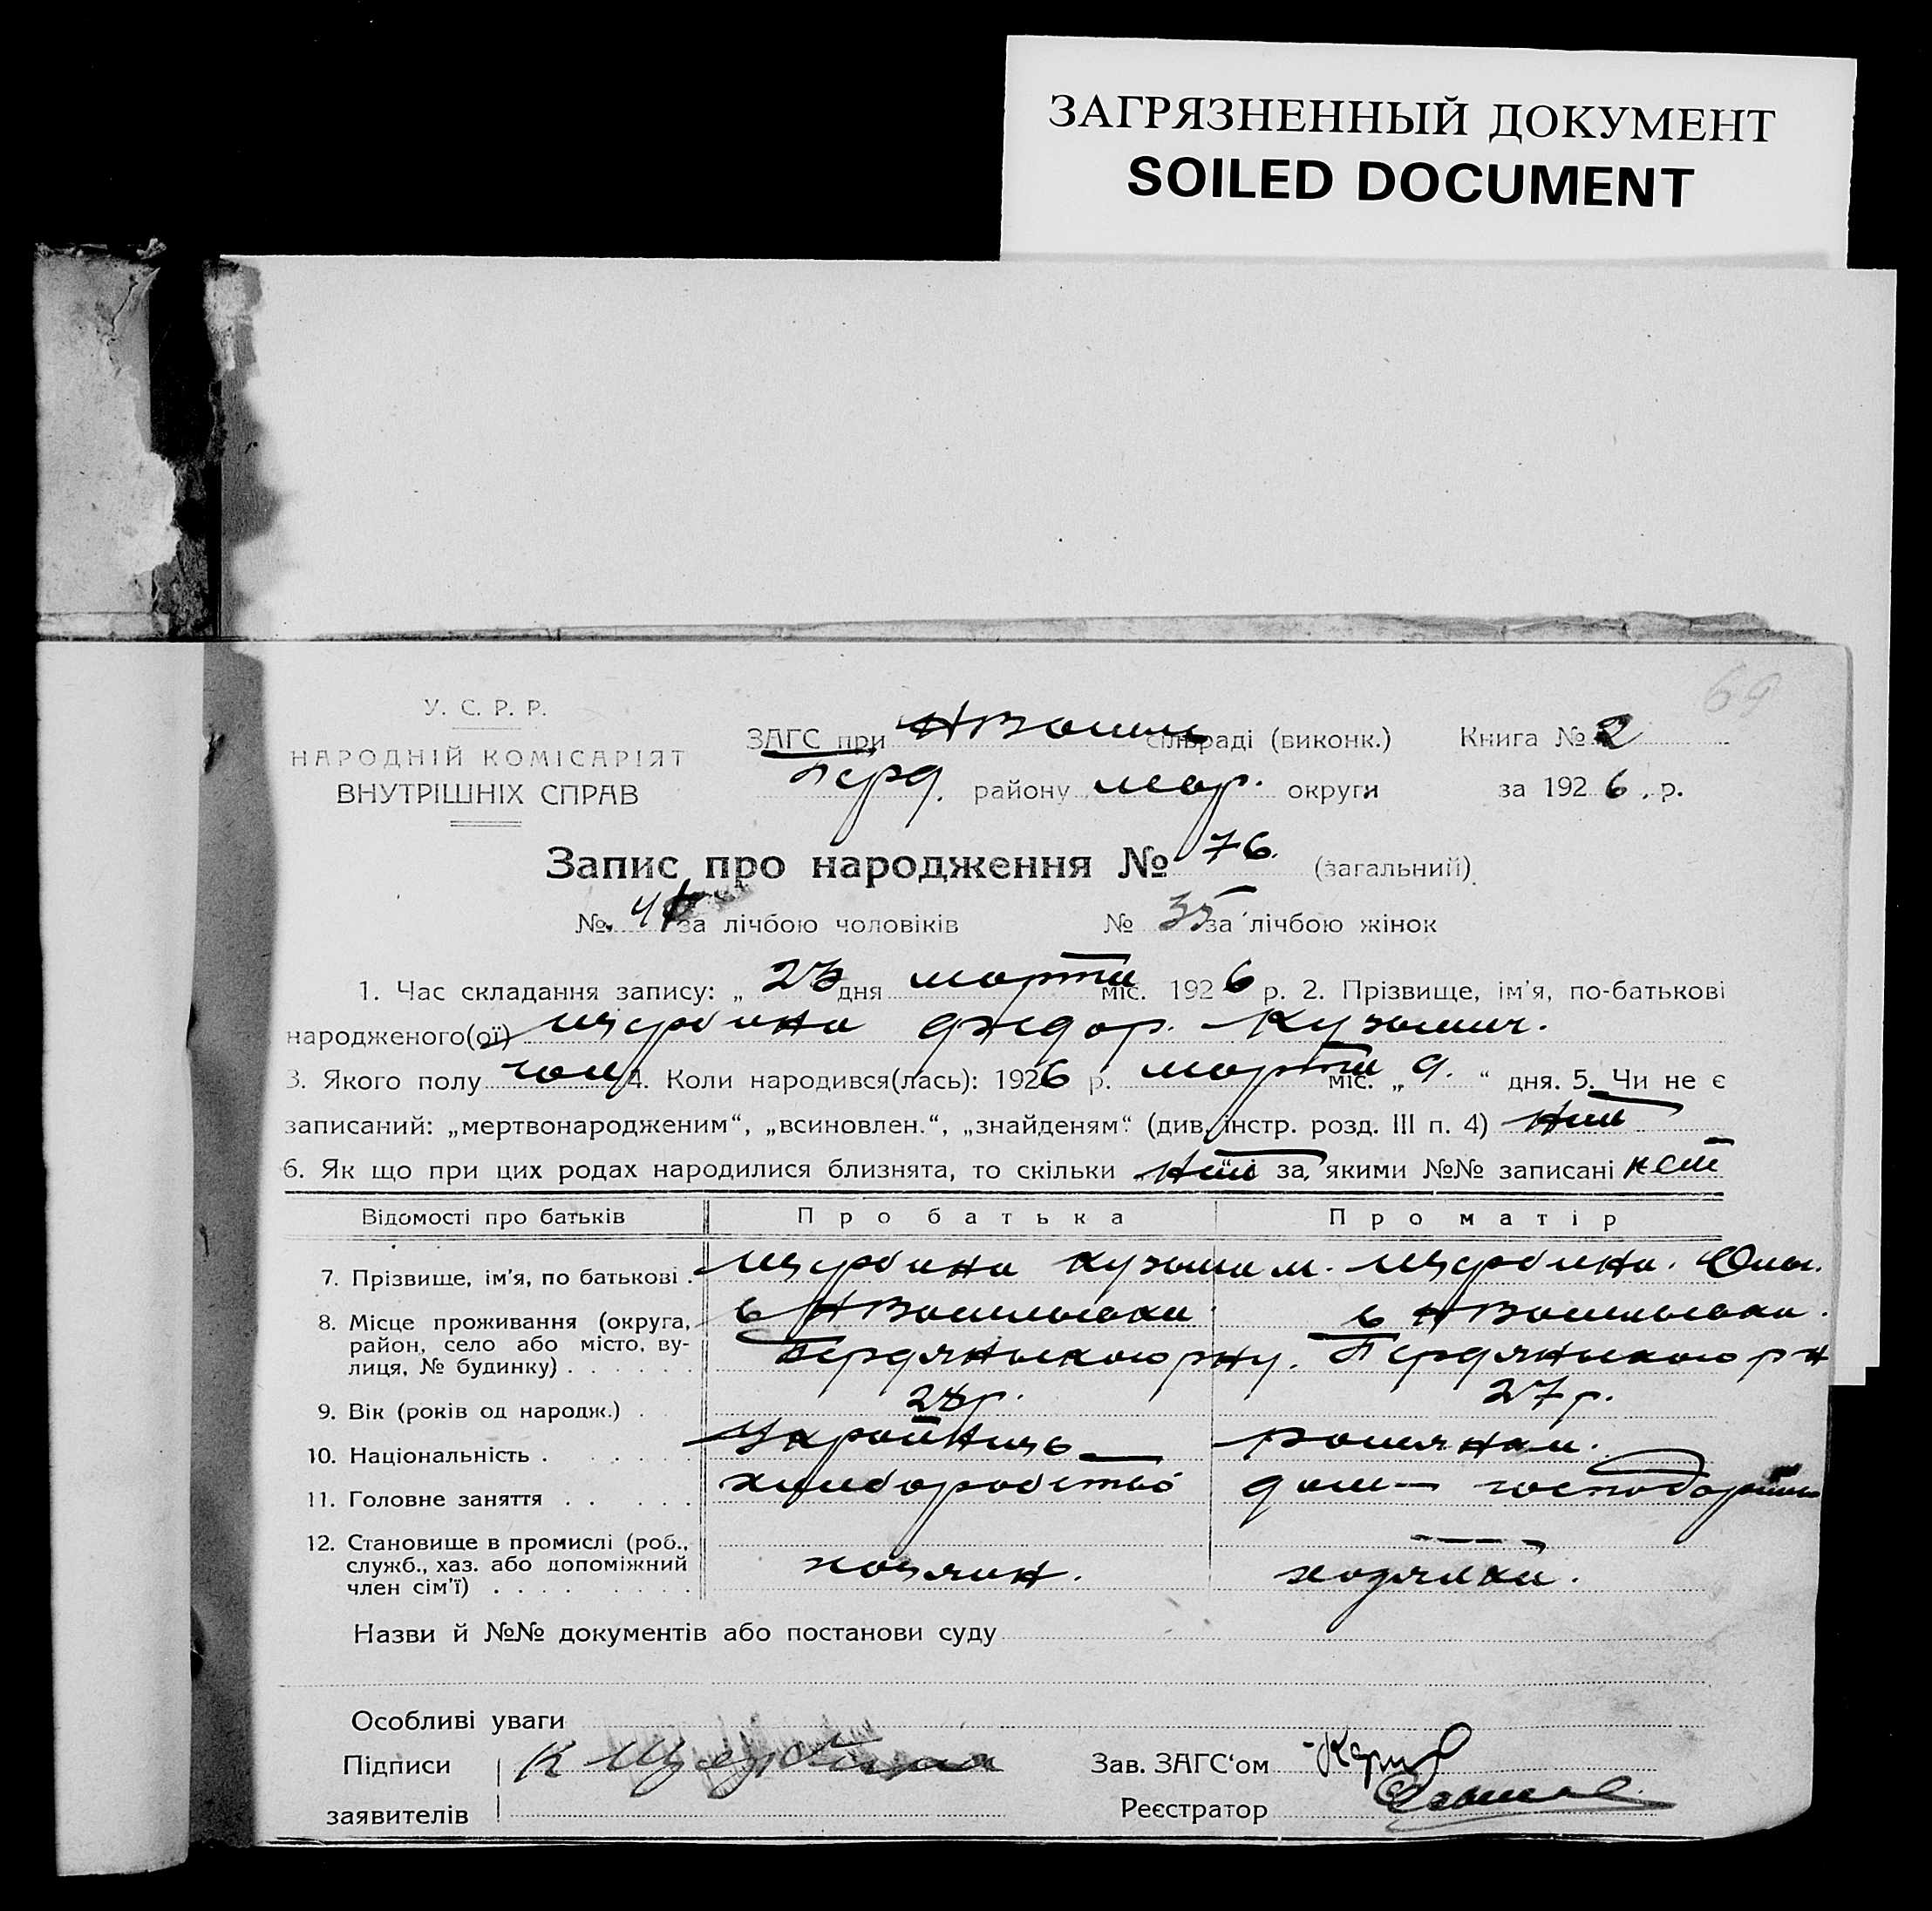 ЗАГРЯЗНЕННЫЙ ДОКУМЕНТ
SOILED DOCUMENT
69
У. С. Р. Р.
НАРОДНІЙ КОМІСАРІЯТ
ВНУТРІШНІХ СПРАВ
ЗАГС при сільраді (виконк.) Книга № 2
Берд. району мар. округи за 1926 р.
Запис про народження № 76. (загальний)
№ за лічбою чоловіків № 35 за лічбою жінок
1. Час складання запису: „ 23 дня марта міс. 1926 р. 2. Прізвище, ім'я, по-батькові
народженого(ої) Щербина Федор. Кузьмич.
3. Якого полу чол 4. Коли народився(лась): 1926 р. марта міс. „ 9. “ дня. 5. Чи не є
записаний: „мертвонародженим“, „всиновлен.“, „знайденям“ (див. інстр. розд. III п. 4) ниш
6. Як що при цих родах народилися близнята, то скільки за якими №№ записані нет
Відомості про батьків Про батька Про матір
7. Прізвище, ім'я, по батькові . Щербина Кузьма м. Щербина.
8. Місце проживання (округа, район, село або місто, вулиця, № будинку) . . . . . .
Бердянського рну. Бердянського р н
9. Вік (років од народж.) . 27 р.
10. Національність . . . . . Украйнець
11. Головне заняття . . . . . хлиборобство дом— господарит
12. Становище в промислі (роб., служб., хаз. або допоміжний член сім'ї) . . . . . . . . хозяин. хозяйка.
Назви й №№ документів або постанови суду
Особливі уваги
Підписи заявителів К Щербина
Зав. ЗАГС'ом
Реєстратор